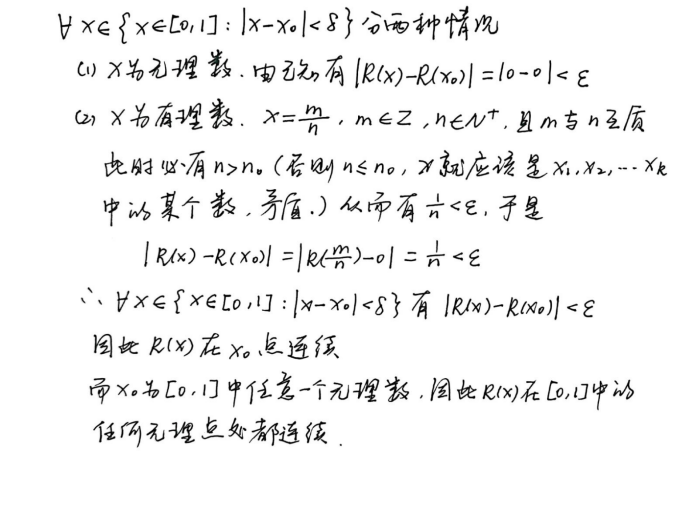 ∀x∈{x∈[0,1]:|x-x₀|<δ}分两种情况
(1) x为无理数.由已知有|R(x)-R(x₀)|=|0-0|<ε
(2) x为有理数.x=m/n,m∈Z,n∈N⁺,且m与n互质
此时必有n>n₀(否则n≤n₀,x就应该是x₁,x₂,…xₖ
中的某个数,矛盾.)从而有1/n<ε,于是
|R(x)-R(x₀)|=|R(m/n)-0|=1/n<ε
∴∀x∈{x∈[0,1]:|x-x₀|<δ}有|R(x)-R(x₀)|<ε
因此R(x)在x₀点连续
而x₀为[0,1]中任意一个无理数,因此R(x)在[0,1]中的
任何无理点处都连续.